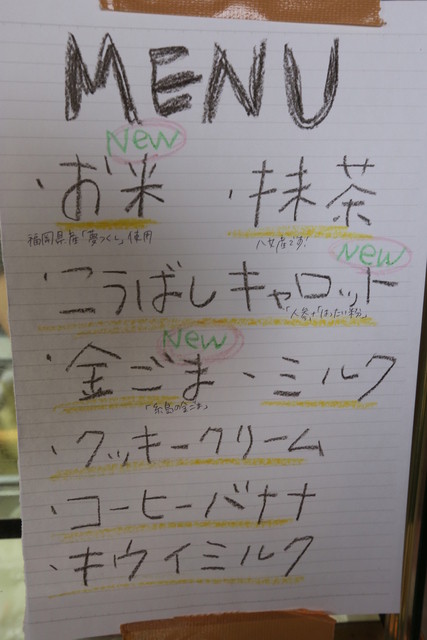 MENU
New
・お米 ・抹茶
福岡県産「夢つくし」使用 八女産です!
New
・こうばしキャロット
「人参」+「はったい粉」
New
・金ごま ・ミルク
「糸島の金ごま」
・クッキークリーム
・コーヒーバナナ
・キウイミルク